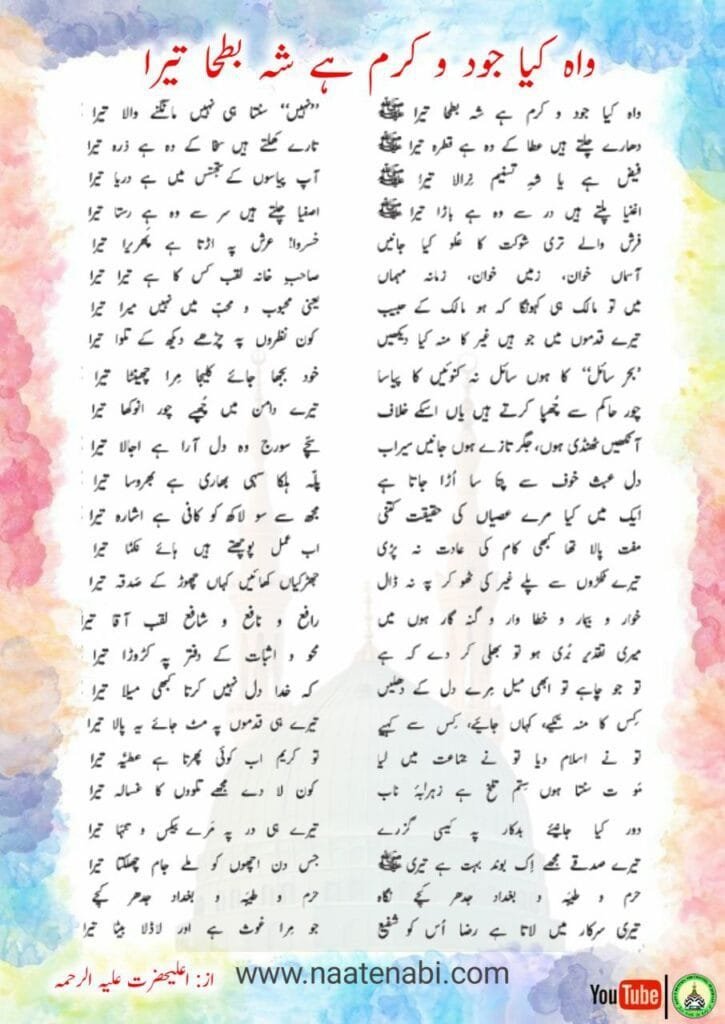 واہ کیا جود و کرم ہے شہ بطحا تیرا
واہ کیا جود و کرم ہے شہ بطحا تیرا ﷺ ”نہیں“ سنتا ہی نہیں مانگنے والا تیرا
دھارے چلتے ہیں عطا کے وہ ہے قطرہ تیرا ﷺ تارے کھلتے ہیں سخا کے وہ ہے ذرہ تیرا
فیض ہے یا شہِ تسنیم نِرالا تیرا ﷺ آپ پیاسوں کے تجسّس میں ہے دریا تیرا
اغنیا پلتے ہیں در سے وہ ہے باڑا تیرا ﷺ اصفیا چلتے ہیں سر سے وہ ہے رستا تیرا
فرش والے تری شوکت کا عُلو کیا جانیں خسروا! عرش پہ اڑتا ہے پھریرا تیرا
آسماں خوان، زمیں خوان، زمانہ مہماں صاحبِ خانہ لقب کس کا ہے تیرا تیرا
میں تو مالک ہی کہونگا کہ ہو مالک کے حبیب یعنی محبوب و محبّ میں نہیں میرا تیرا
تیرے قدموں میں جو ہیں غیر کا منہ کیا دیکھیں کون نظروں پہ چڑھے دیکھ کے تلوا تیرا
”بحرِ سائل“ کا ہوں سائل نہ کنوئیں کا پیاسا خود بجھا جائے کلیجا مِرا چھینٹا تیرا
چور حاکم سے چُھپا کرتے ہیں یاں اسکے خلاف تیرے دامن میں چُھپے چور انوکھا تیرا
آنکھیں ٹھنڈی ہوں، جگر تازے ہوں جانیں سیراب سچّے سورج وہ دل آرا ہے اجالا تیرا
دل عبث خوف سے پتا سا اُڑا جاتا ہے پلّہ ہلکا سہی بھاری ہے بھروسا تیرا
ایک میں کیا مرے عصیاں کی حقیقت کتنی مجھ سے سو لاکھ کو کافی ہے اشارہ تیرا
مفت پالا تھا کبھی کام کی عادت نہ پڑی اب عمل پوچھتے ہیں ہائے نکمّا تیرا
تیرے ٹکڑوں سے پلے غیر کی ٹھوکر پہ نہ ڈال جھڑکیاں کھائیں کہاں چھوڑ کے صدقہ تیرا
خوار و بیمار و خطا وار و گنہ گار ہوں میں رافع و نافع و شافع لقب آقا تیرا
میری تقدیر بُری ہو تو بھلی کر دے کہ ہے محو و اثبات کے دفتر پہ کڑوڑا تیرا
تو جو چاہے تو ابھی میل مِرے دل کے دھلیں کہ خدا دل نہیں کرتا کبھی میلا تیرا
کِس کا منہ تکیے، کہاں جائیے، کِس سے کہیے تیرے ہی قدموں پہ مٹ جائے یہ پالا تیرا
تو نے اسلام دیا تو نے جماعت میں لیا تو کریم اب کوئی پھرتا ہے عطیّہ تیرا
مَو ت سنتا ہوں سِتم تلخ ہے زہرابۂ ناب کون لا دے مجھے تلووں کا غسالہ تیرا
دور کیا جانیے بدکار پہ کیسی گزرے تیرے ہی در پہ مَرے بیکس و تنہا تیرا
تیرے صدقے مجھے اِک بوند بہت ہے تیری ﷺ جس دن اچھوں کو ملے جام چھلکتا تیرا
حرم و طیبّہ و بغداد جدھر کیجے نگاہ حرم و طیبّہ و بغداد جدھر کیجے
تیری سرکار میں لاتا ہے رضا اُس کو شفیع جو مِرا غوث ہے اور لاڈلا بیٹا تیرا
از: اعلیٰحضرت علیہ الرحمہ
www.naatenabi.com
YouTube